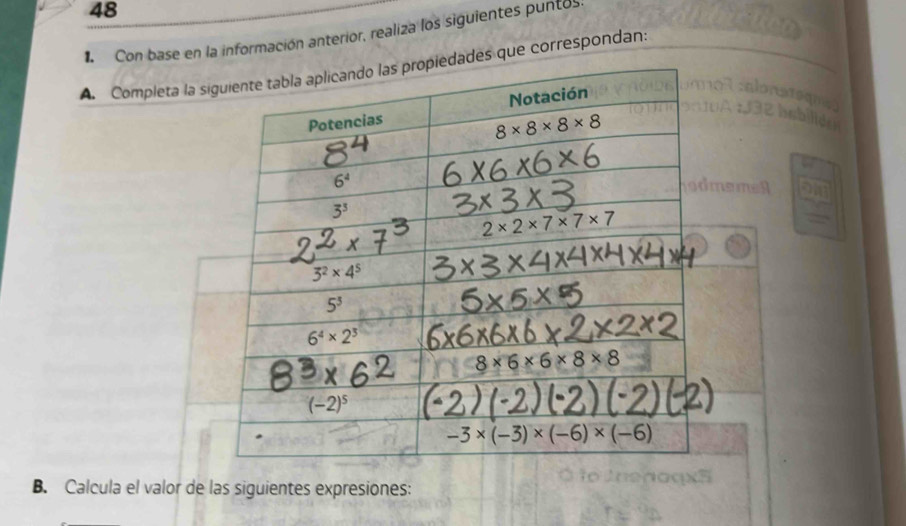 48
1. Con base en la información anterior, realiza los siguientes puntos.
A. Completa la siguiente tabla aplicando las propiedades que correspondan:
Potencias Notación
8⁴ 8 × 8 × 8 × 8
6⁴ 6 × 6 × 6 × 6
3³ 3 × 3 × 3
2² × 7³ 2 × 2 × 7 × 7 × 7
3² × 4⁵ 3 × 3 × 4 × 4 × 4 × 4 × 4
5³ 5 × 5 × 5
6⁴ × 2³ 6 × 6 × 6 × 6 × 2 × 2 × 2
8³ × 6² 8 × 6 × 6 × 8 × 8
(−2)⁵ (-2)(-2)(-2)(-2)(-2)
−3 × (−3) × (−6) × (−6)
B. Calcula el valor de las siguientes expresiones: